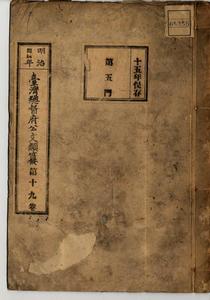 十五年保存
第五門
明治
年
臺灣總督府公文類纂第十九卷